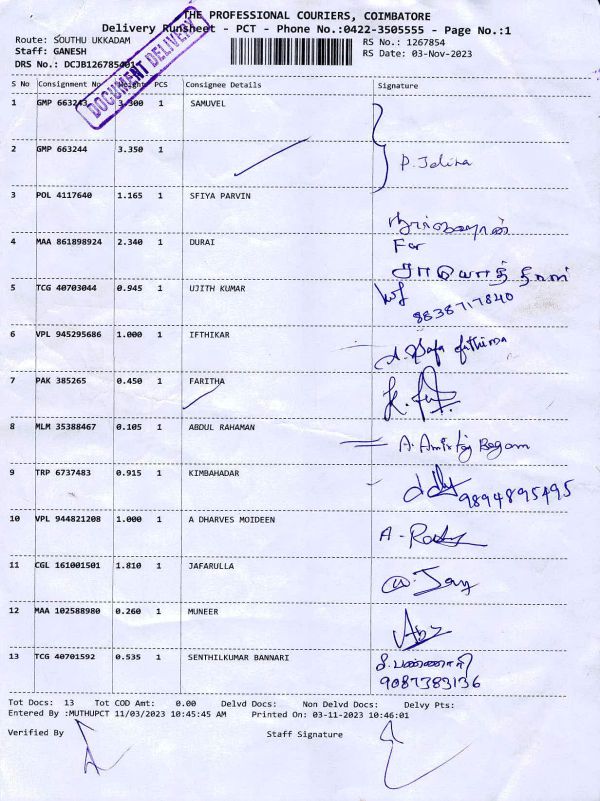 THE PROFESSIONAL COURIERS, COIMBATORE
Delivery Runsheet - PCT - Phone No.:0422-3505555 - Page No.:1
Route: SOUTHU UKKADAM
RS No.: 1267854
Staff: GANESH
RS Date: 03-Nov-2023
DRS No.: DCJB1267854014
DOCUMENT DELIVERY
S No Consignment No Weight PCS Consignee Details Signature
1 GMP 663243 3.300 1 SAMUVEL
2 GMP 663244 3.350 1
P. Jelina
3 POL 4117640 1.165 1 SFIYA PARVIN
4 MAA 861898924 2.340 1 DURAI
For
5 TCG 40703044 0.945 1 UJITH KUMAR
8838717840
6 VPL 945295686 1.000 1 IFTHIKAR
7 PAK 385265 0.450 1 FARITHA
8 MLM 35388467 0.105 1 ABDUL RAHAMAN
Begam
9 TRP 6737483 0.915 1 KIMBAHADAR
9894895495
10 VPL 944821208 1.000 1 A DHARVES MOIDEEN
11 CGL 161001501 1.810 1 JAFARULLA
12 MAA 102588980 0.260 1 MUNEER
13 TCG 40701592 0.535 1 SENTHILKUMAR BANNARI
9087383136
Tot Docs: 13 Tot COD Amt: 0.00 Delvd Docs: Non Delvd Docs: Delvy Pts:
Entered By :MUTHUPCT 11/03/2023 10:45:45 AM Printed On: 03-11-2023 10:46:01
Verified By Staff Signature